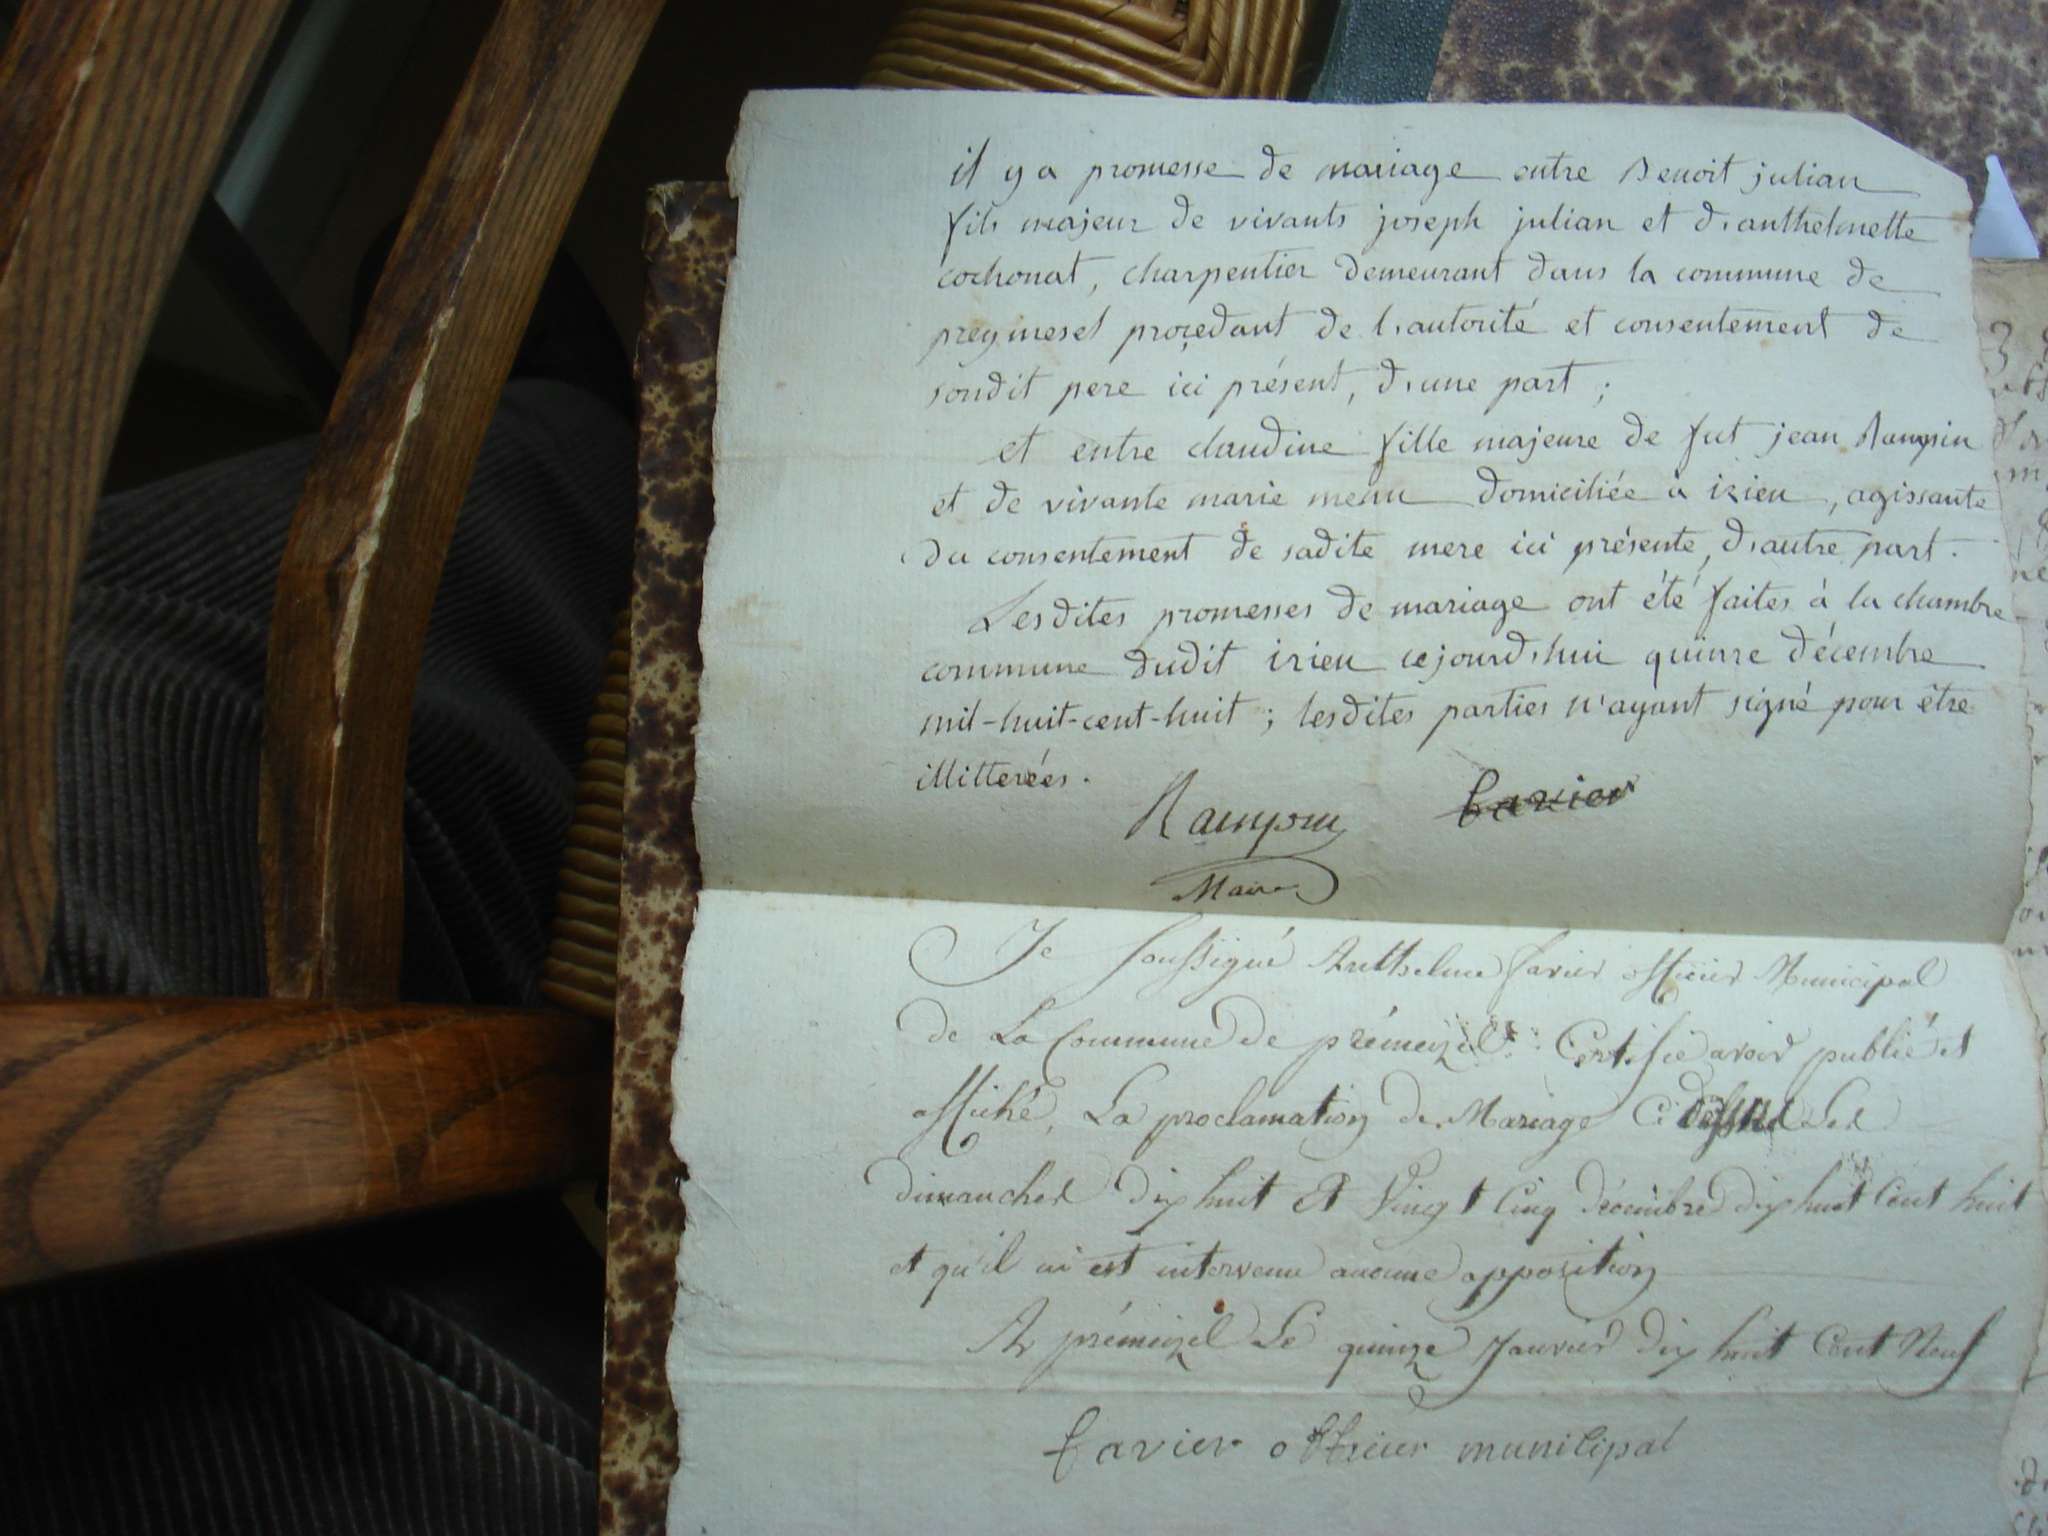 il y a promesse de mariage entre Benoit julian
fils majeur de vivants joseph julian et d'anthelmette
cochonat, charpentier demeurant dans la commune de
preymesel proçedant de l'autorité et consentement de
sondit pere ici présent, d'une part ;
et entre claudine fille majeure de fut jean Rampin
et de vivante marie menu domiciliée à izieu, agissante
du consentement de sadite mere ici présente, d'autre part.
Lesdites promesses de mariage ont été faites à la chambre
commune dudit izieu cejourd'hui quinze décembre
mil-huit-cent-huit ; lesdites parties n'ayant signé pour être
illitterées.
Rampin favier
Maire
Je soussigné Anthelme favier officier Municipal
de La Commune de prémeizel Certifie avoir publié et
affiché, La proclamation de Mariage Ci dessus Les
dimanches dix huit Et Vingt Cinq décembre dix huit Cent huit
et qu'il ni est intervenu aucune apposition
A prémeizel Le quinze Janvier dix huit Cent Neuf
favier officier municipal